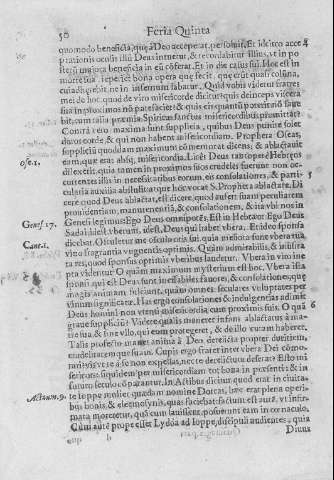 50 Feria Quinta
quomodo beneficia, quę à Deo acceperat persoluit. Et idcirco acce 4
ptationis oculis illū Deus intuetur, & recordabitur illius, vt in po
sterū magna beneficia in eū cōferat. Et in die casus sui. Hoc est in
morte sua reperiet bona opera quę fecit, quę erūt quasi colūna,
cui adhęrebit, ne in infernum labatur. Quid vobis videtur fratres
mei de hoc, quod de viro misericorde dicitur:
sua in proximos nō patefaciet: & quis
bit, cum talia pręmia Spiritus sanctus misericordibus promittat.
Contra verò maxima sunt supplicia, quibus Deus punire solet
duros corde, & qui non habent misericordiam. Propheta Oseas,
Ose.1. supplicium quoddam maximum cōmemorat dicens, & ablactauit
eam, quę erat absq; misericordia. Licèt Deus Hebręos
dilexerit, quia tamen in proximos suos crudeles fuerunt non oc-
currentes illis in necessitatibus eorum, eis consolationes, & parti- 5
cularia auxilia abstulit, atque hoc vocat S. Propheta ablactare. Di
cere quod Deus ablactat, est dicere, quod aufert suam peculiarem
prouidentiam, manutenentiā, & consolationem, & ita vbi nos in
Genes. 17. Genesi legimus: Ego Deus omnipotēs. Est in Hebręo: Ego Deus
Saddai idest vberum, idest, Deus qui habet vbera. Et ideo sponsa
Cant.1. dicebat. Osculetur me osculo oris sui, quia meliora sunt vbera tua
vino fragrantia vnguentis optimis. Quàm admirabilis, & insinita
res, quod sponsus optimis vberibus laudetur. Vbera in viro ine
pta videntur. O quàm maximum mysterium est hoc. Vbera illa
sponsi qui est Deus sunt ineffabiles fauores, & consolationes, quę
magis animam alliciunt, quàm omnes seculares voluptates per
vinum significatę. Has ergo consolationes & indulgentias adimit
Deus homini non vtenti misericordia cum proximo suo. O quā 6
graue supplicium: Videte qualis maneret infans ablactatus à ma-
tre sua, & sine vllo, qui eum protegeret, & de illo curam haberet.
Talis profectò manet anima à Deo derelicta propter duritiem,
crudelitatem que suam. Cupis ergo frater inter vbera Dei cōmo-
rari, vis vt te à se non expellat, nec te derelictum deserat: Esto mi
sericors, siquidem per misericordiam tot bona in pręsenti & in
futuro seculo cōparantur. In Actibus dicitur quod erat in ciuita-
Actuum.9. te Ioppe mulier quędam nomine Dorcas, hęc erat plena operi-
bus bonis, & eleemosynis, quas faciebat: factum est autē, vt infir-
mata moreretur, quā cum lauissent, posuerunt eam in cœnaculo,
Cùm autē prope esset Lydda ad Ioppe, discipuli audientes, quia
b Diuus